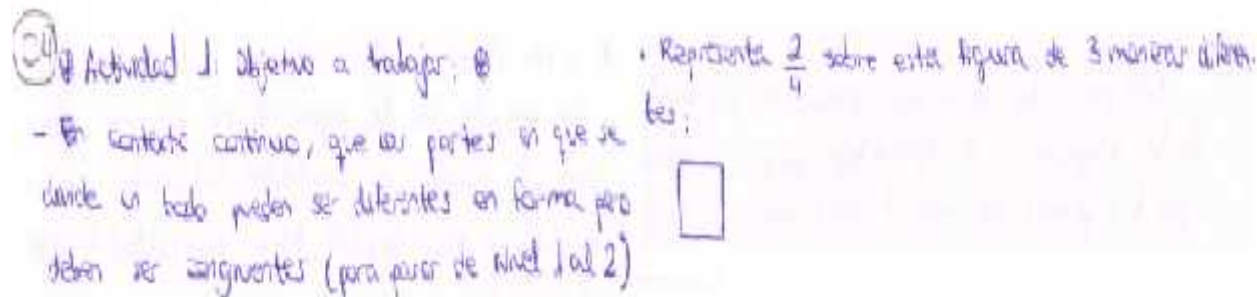 C4) Actividad 1: Objetivo a trabajar:
- En contexto continuo, que las partes en que se
divide un todo pueden ser diferentes en forma pero
deben ser congruentes (para pasar de nivel 1 al 2)
· Representa 2/4 sobre esta figura de 3 maneras diferen-
tes: